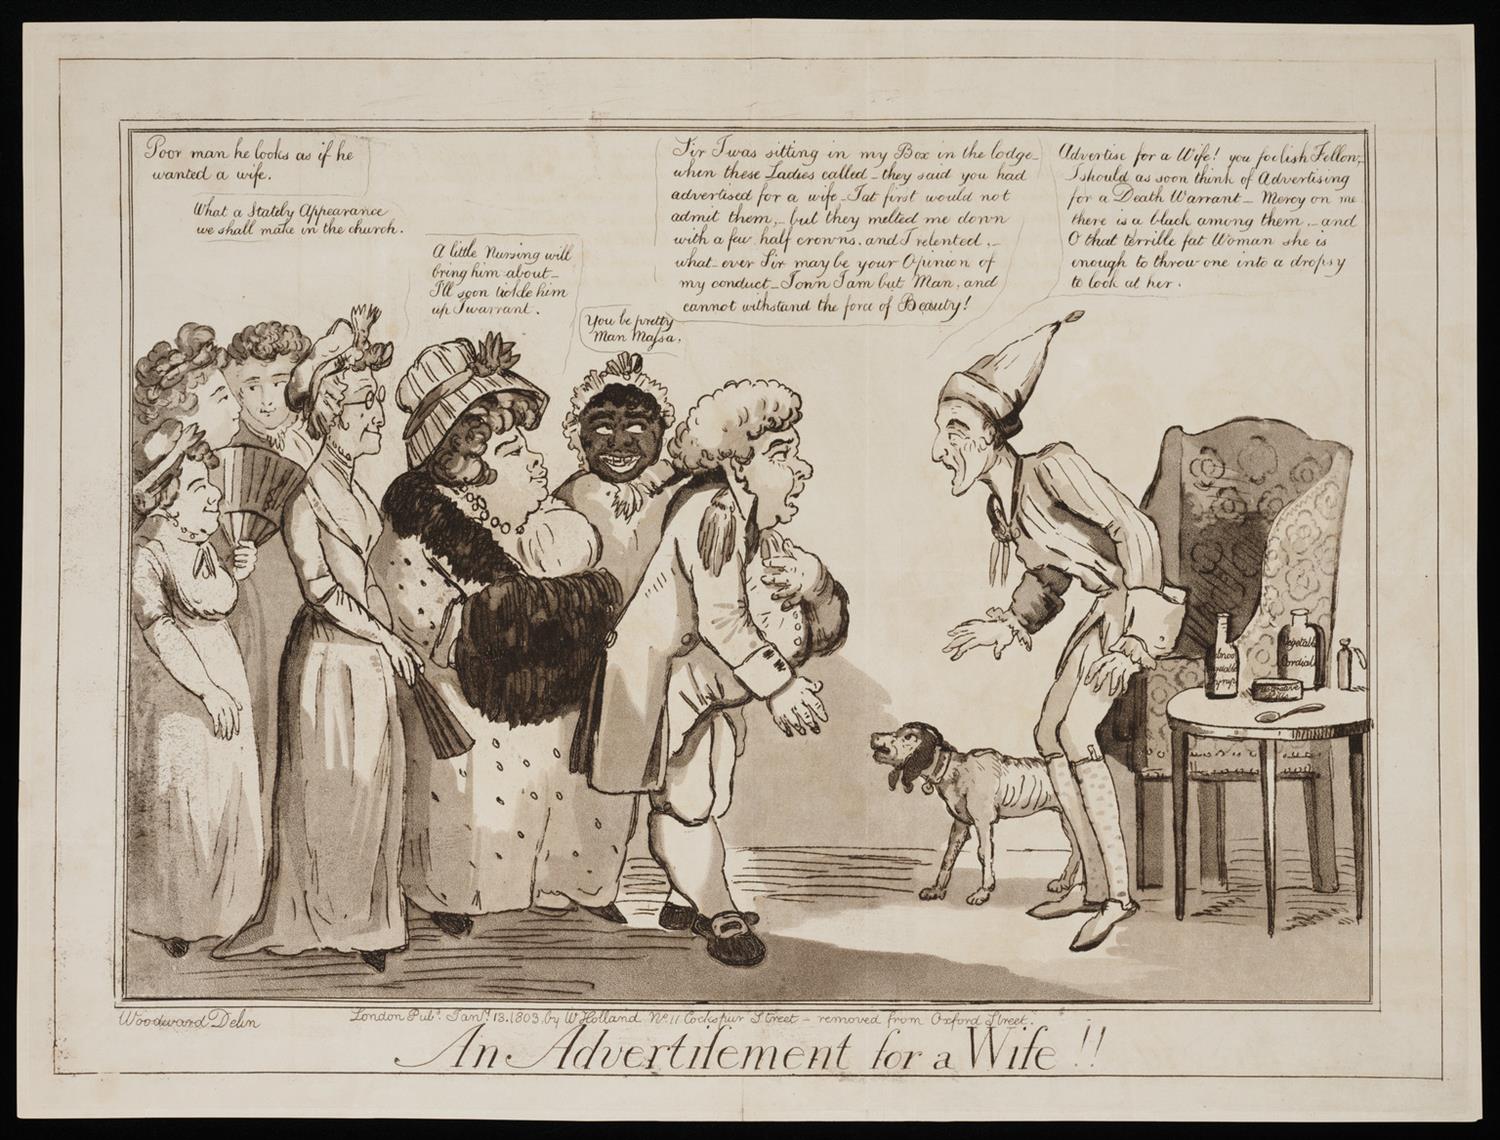 Poor man he looks as if he
wanted a wife.
What a Stately Appearance
we shall make in the church.
A little Nursing will
bring him about_
I'll soon tickle him
up I warrant.
You be pretty
Man Maſsa.
Sir I was sitting in my Box in the lodge_
when these Ladies called_they said you had
advertised for a wife_I at first would not
admit them,_but they melted me down
with a few half crowns, and I relented._
what-ever Sir may be your Opinion of
my conduct_I own I am but Man, and
cannot withstand the force of Beauty!
Advertise for a Wife! you foolish Fellow,_
I should as soon think of Advertising
for a Death Warrant_ Mercy on me
there is a black among them,_and
O that terrible fat Woman she is
enough to throw one into a dropsy
to look at her.
Vegetable
Cordial
Syrup
Woodward Delin
London Pubd. Jany. 13. 1803. by W Holland No. 11 Cockspur Street_removed from Oxford Street.
An Advertiſement for a Wife!!